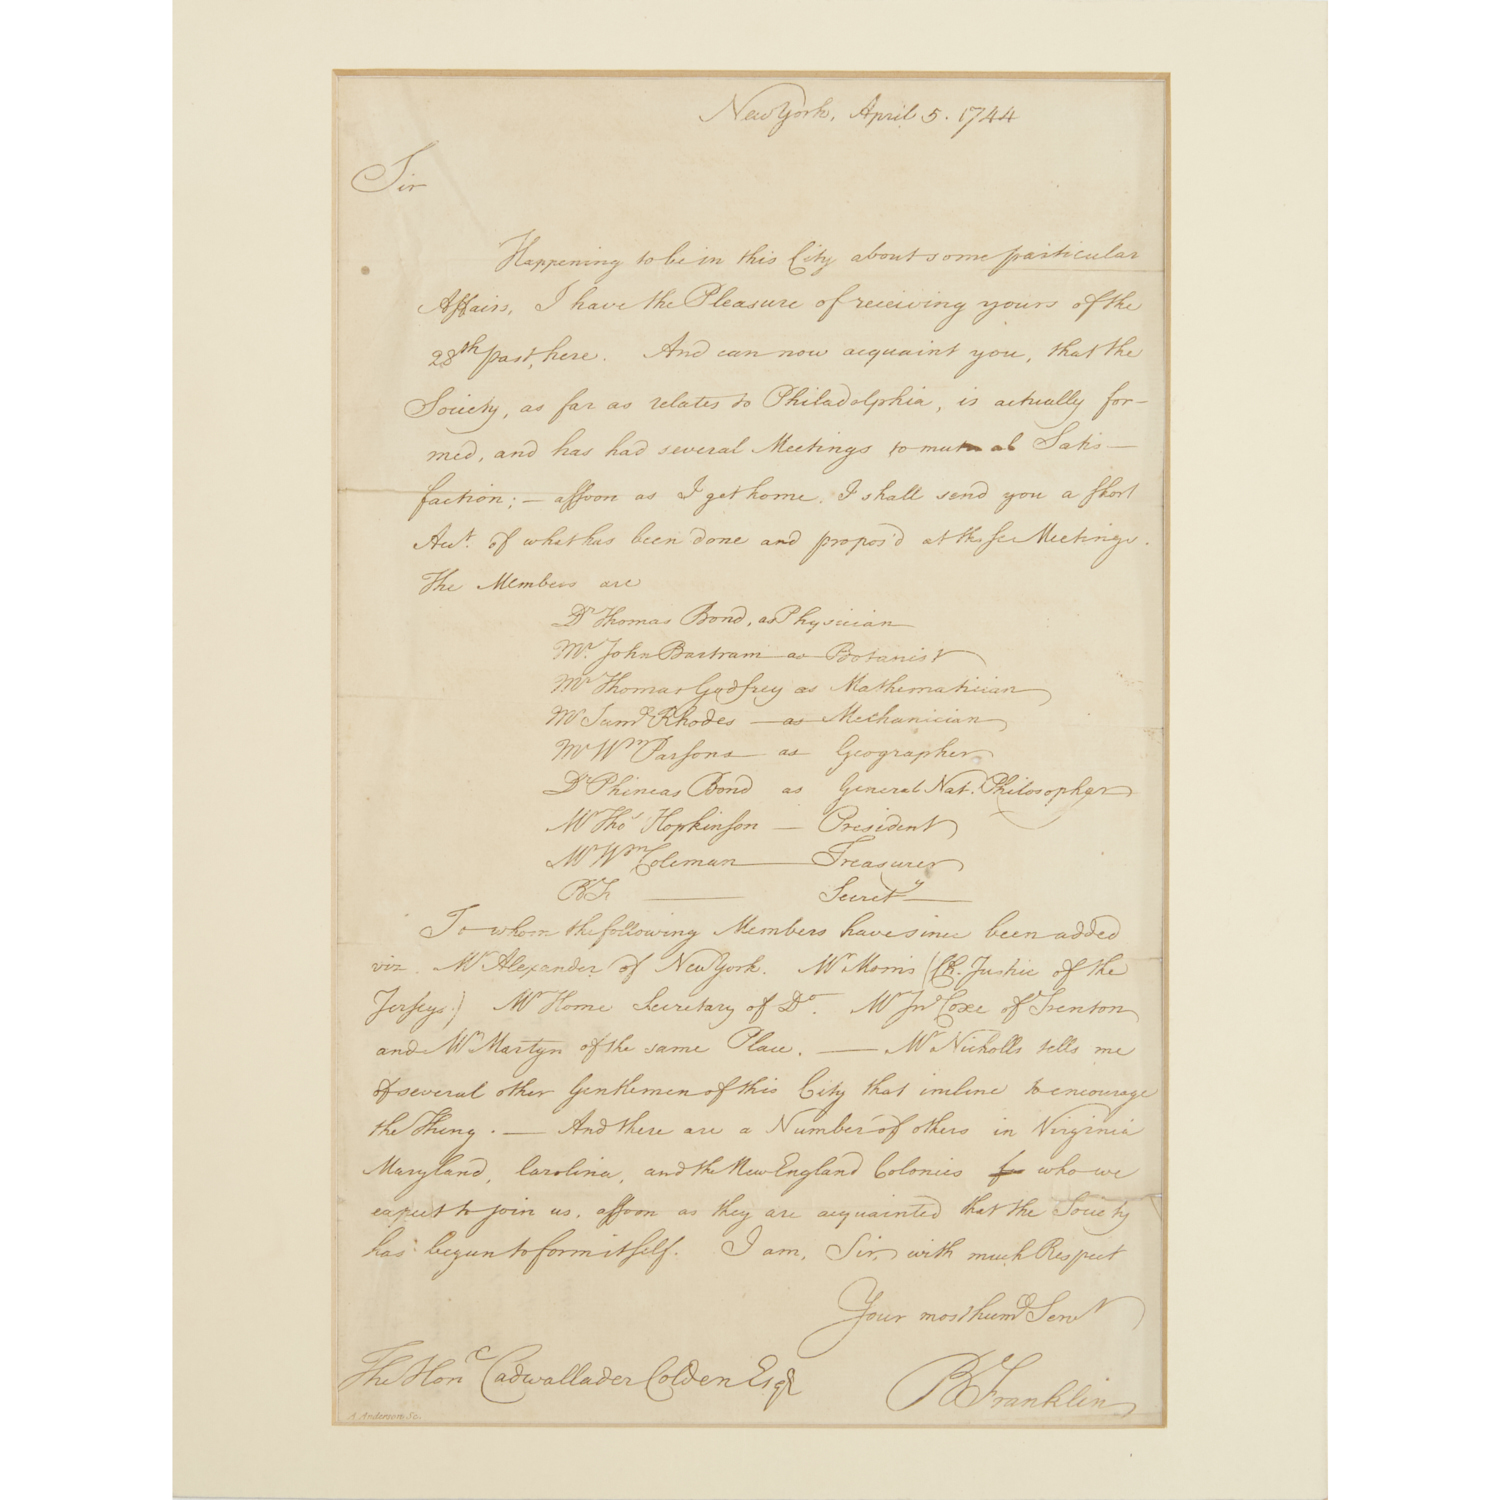 New York, April 5. 1744
Sir
Happening to be in this City about some particular
Affairs, I have the Pleasure of receiving yours of the
28th past, here. And can now acquaint you, that the
Society, as far as relates to Philadelphia, is actually for-
med, and has had several Meetings to mutual Satis-
faction; — assoon as I get home, I shall send you a short
Acct. of what has been done and propos'd at these Meetings.
The Members are
Dr Thomas Bond, as Physician
Mr. John Bartram as Botanist
Mr Thomas Godfrey as Mathematician
Mr Saml Rhodes — as Mechanician
Mr Wm Parsons as Geographer
Dr Phineas Bond as General Nat. Philosopher
Mr Thos Hopkinson — President
Mr Wm Coleman — Treasurer
BF — Secrety —
To whom the following Members have since been added
viz. Mr Alexander of New York. Mr Morris (Ch. Justice of the
Jerseys.) Mr Home Secretary of Do. Mr Jno Coxe of Trenton
and Mr Martyn of the same Place. — Mr Nicholls tells me
of several other Gentlemen of this City that incline to encourage
the Thing. — And there are a Number of others in Virginia
Maryland, Carolina, and the New England Colonies who we
expect to join us, assoon as they are acquainted that the Society
has begun to form itself. I am, Sir, with much Respect
Your most humle Servt
The Hone Cadwallader Colden Esqr
B Franklin
A Anderson Sc.